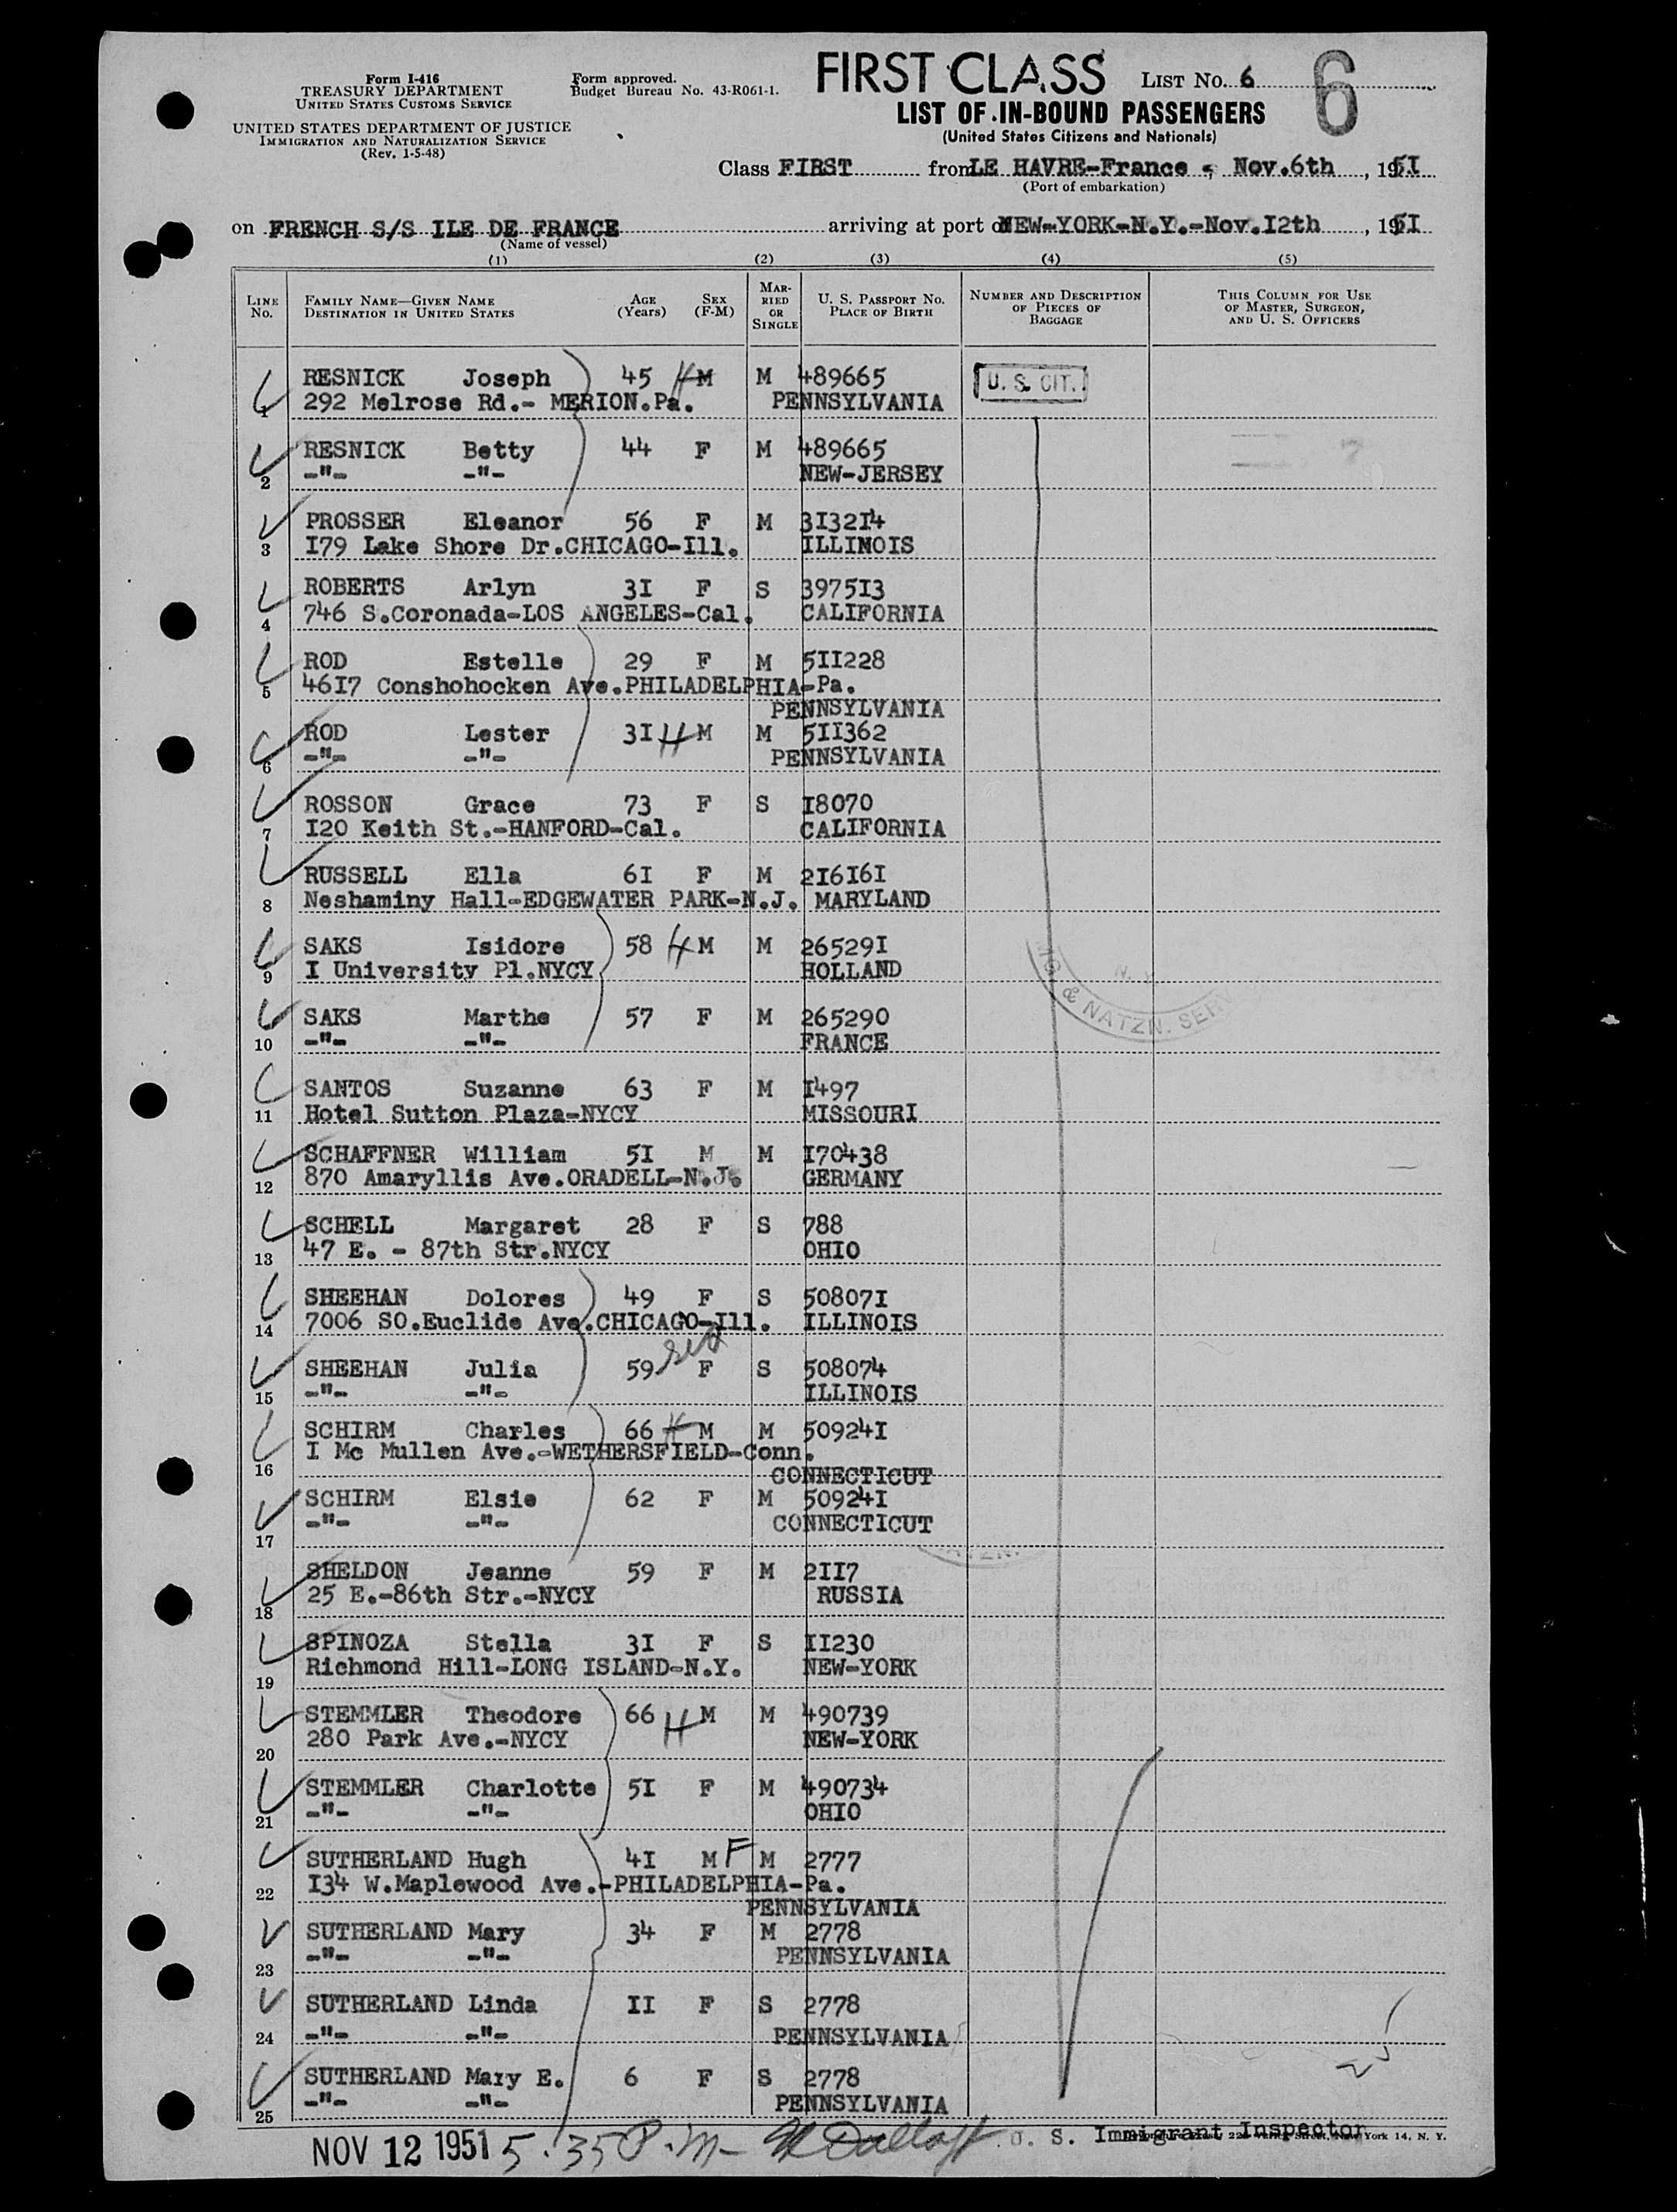 Form I-416
TREASURY DEPARTMENT
UNITED STATES CUSTOMS SERVICE
UNITED STATES DEPARTMENT OF JUSTICE
IMMIGRATION AND NATURALIZATION SERVICE
(Rev. 1-5-48)
Form approved.
Budget Bureau No. 43-R061-1.
FIRST CLASS LIST No. 6 6
LIST OF IN-BOUND PASSENGERS
(United States Citizens and Nationals)
Class FIRST from LE HAVRE-France - Nov.6th, 195I
(Port of embarkation)
on FRENCH S/S ILE DE FRANCE arriving at port of NEW-YORK-N.Y.-Nov.I2th, 195I
(Name of vessel)
(1) (2) (3) (4) (5)
LINE No. FAMILY NAME—GIVEN NAME DESTINATION IN UNITED STATES AGE (Years) SEX (F-M) MARRIED OR SINGLE U. S. PASSPORT No. PLACE OF BIRTH NUMBER AND DESCRIPTION OF PIECES OF BAGGAGE THIS COLUMN FOR USE OF MASTER, SURGEON, AND U. S. OFFICERS
1 RESNICK Joseph 45 H M M 489665 U. S. CIT.
292 Melrose Rd.- MERION.Pa. PENNSYLVANIA
2 RESNICK Betty 44 F M 489665
-"- -"- NEW-JERSEY
3 PROSSER Eleanor 56 F M 3I32I4
I79 Lake Shore Dr.CHICAGO-Ill. ILLINOIS
4 ROBERTS Arlyn 3I F S 3975I3
746 S.Coronada-LOS ANGELES-Cal. CALIFORNIA
5 ROD Estelle 29 F M 5II228
46I7 Conshohocken Ave.PHILADELPHIA-Pa.
PENNSYLVANIA
6 ROD Lester 3I H M M 5II362
-"- -"- PENNSYLVANIA
7 ROSSON Grace 73 F S I8070
I20 Keith St.-HANFORD-Cal. CALIFORNIA
8 RUSSELL Ella 6I F M 2I6I6I
Neshaminy Hall-EDGEWATER PARK-N.J. MARYLAND
9 SAKS Isidore 58 H M M 26529I
I University Pl.NYCY HOLLAND
10 SAKS Marthe 57 F M 265290
-"- -"- FRANCE
& NATZN. SERV
11 SANTOS Suzanne 63 F M I497
Hotel Sutton Plaza-NYCY MISSOURI
12 SCHAFFNER William 5I M M I70438
870 Amaryllis Ave.ORADELL-N.J. GERMANY
13 SCHELL Margaret 28 F S 788
47 E. - 87th Str.NYCY OHIO
14 SHEEHAN Dolores 49 F S 50807I
7006 SO.Euclide Ave.CHICAGO-Ill. ILLINOIS
15 SHEEHAN Julia 59 F S 508074
-"- -"- ILLINOIS
16 SCHIRM Charles 66 H M M 50924I
I Mc Mullen Ave.-WETHERSFIELD-Conn.
CONNECTICUT
17 SCHIRM Elsie 62 F M 50924I
-"- -"- CONNECTICUT
18 SHELDON Jeanne 59 F M 2II7
25 E.-86th Str.-NYCY RUSSIA
19 SPINOZA Stella 3I F S II230
Richmond Hill-LONG ISLAND-N.Y. NEW-YORK
20 STEMMLER Theodore 66 H M M 490739
280 Park Ave.-NYCY NEW-YORK
21 STEMMLER Charlotte 5I F M 490734
-"- -"- OHIO
22 SUTHERLAND Hugh 4I M F M 2777
I34 W.Maplewood Ave.-PHILADELPHIA-Pa.
PENNSYLVANIA
23 SUTHERLAND Mary 34 F M 2778
-"- -"- PENNSYLVANIA
24 SUTHERLAND Linda II F S 2778
-"- -"- PENNSYLVANIA
25 SUTHERLAND Mary E. 6 F S 2778
-"- -"- PENNSYLVANIA
NOV 12 1951 5.35 P.M- U. S. Immigrant Inspector
Street, New York 14, N. Y.